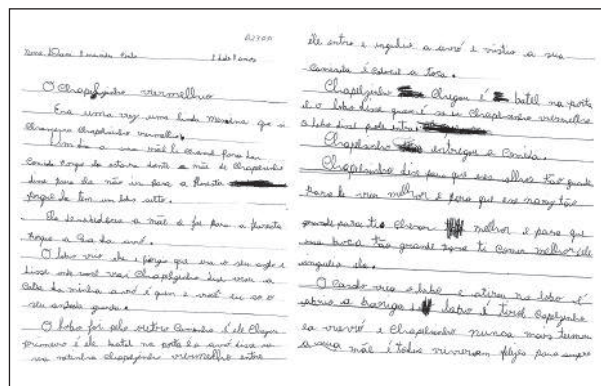 Nome Davi
O Chapelzinho vermelho
Era uma vez uma linda menina que si
Chamava Chapelzinho vermelho
Um dia a sua mãe
Comida porqe ela estava dente a mãe de Chapelzinho
disse para ela não ir para a floresta
porqe la tem um lobo
Ela desobedeceu a mãe e foi para a floresta
porqe a Casa da
O lobo viu ela e
disse você vai Chapelzinho disse vou na
Casa da minha avó e quem e você eu so o
seu
O lobo foi pelo outro Caminho e ele Chegou
primeiro e ele bateu na porta e a avó disse
netinha Chapelzinho vermelho entre
ele entro e engoliu a avó e vistiu a sua
Camisola e colocol a toca.
Chapelzinho Chegou e bateu na porta
e o lobo disse quem é Chapelzinho vermelho
o lobo disse pode entra
Chapelzinho entregou a Comida.
Chapelzinho disse para que seus olhos tão grande
Para te ver melhor e para que esse nariz tão
grande para ti Cheirar melhor e para que
sua boca tão grande ti Comer melhor
engoliu ela.
O viu o lobo e atirou no lobo e
abriu a bariga do lobo e tirol Chapelzinho
e a vovó e Chapelzinho nunca mais
a sua mãe e todos viveram felizes para sempre